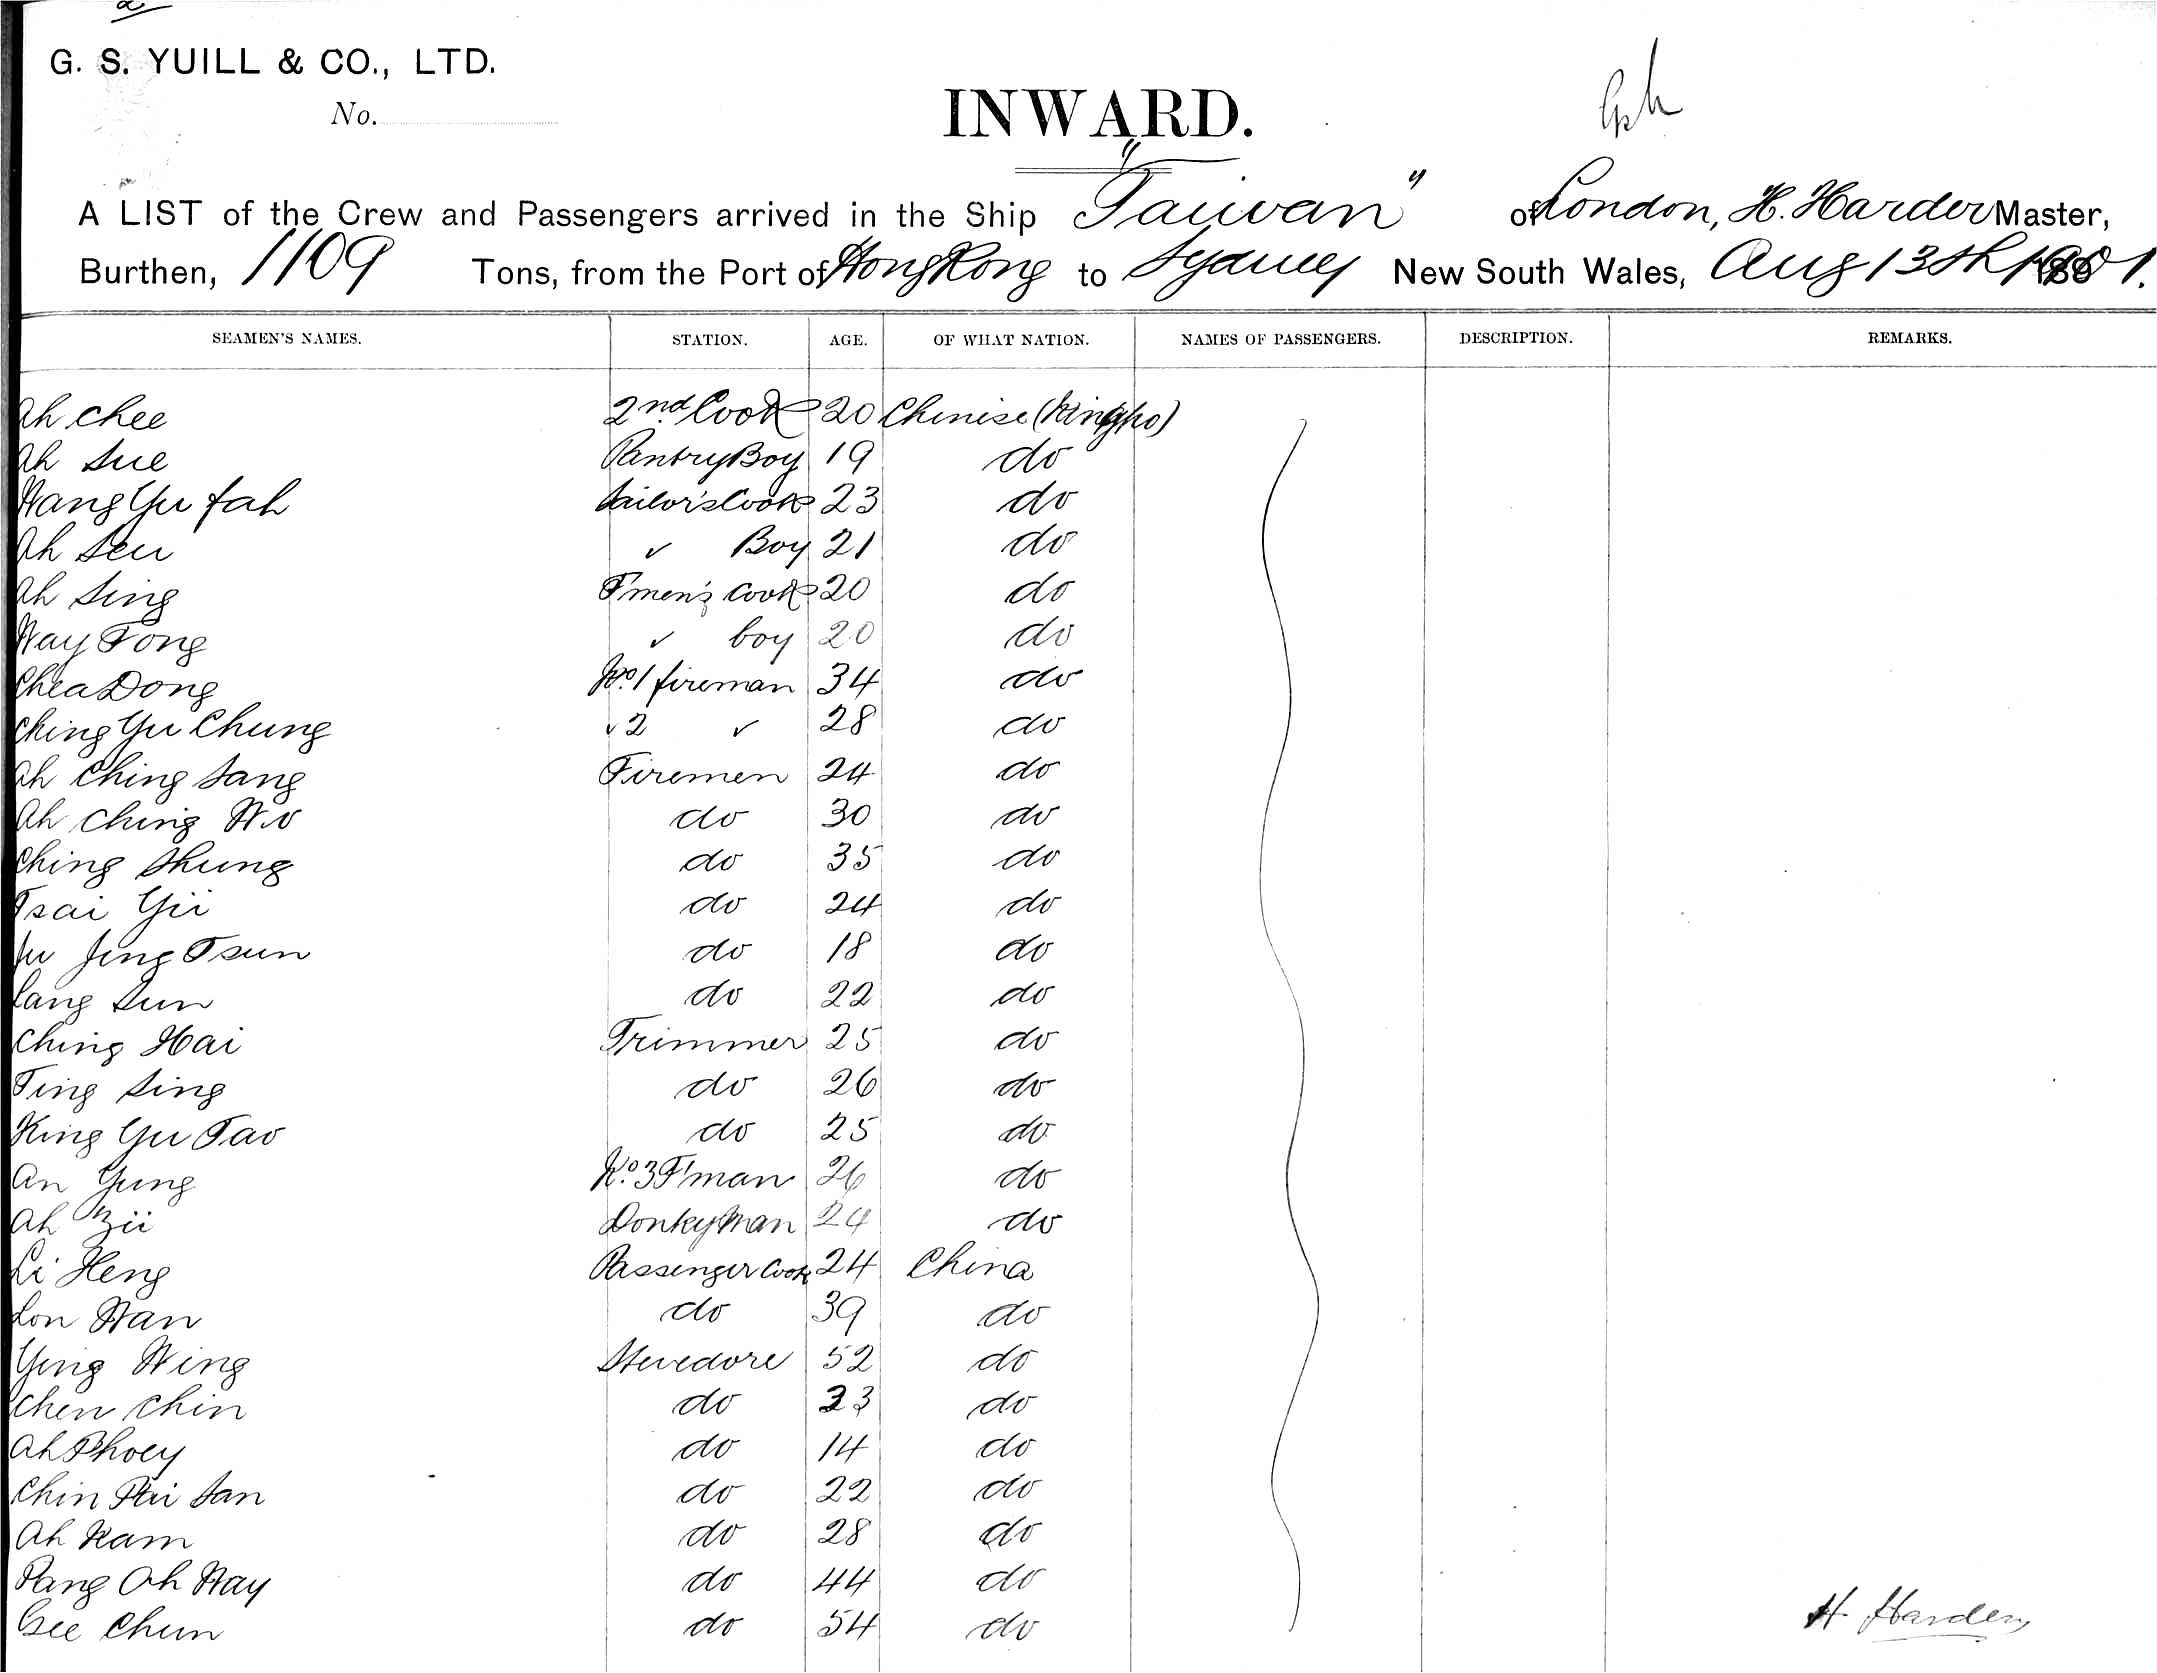 2
G. S. YUILL & CO., LTD.
No.
INWARD.
A LIST of the Crew and Passengers arrived in the Ship "Taiwan" of London, H. Harder Master,
Burthen, 1109 Tons, from the Port of Hong Kong to Sydney New South Wales, Aug 13th 1901.
SEAMEN'S NAMES. STATION. AGE. OF WHAT NATION. NAMES OF PASSENGERS. DESCRIPTION. REMARKS.
Ah Chee 2nd Cook 20 Chinese (Ningpo)
Ah Sue Pantry Boy 19 do
Wang Yu fah Sailor's Cook 23 do
Ah Seu ✓ Boy 21 do
Ah Sing F'men's Cook 20 do
Way Fong ✓ boy 20 do
Chea Dong No. 1 fireman 34 do
Ching Yu Chung ✓ 2 ✓ 28 do
Ah Ching Sang Firemen 24 do
Ah Ching Wo do 30 do
Ching Shung do 35 do
Tsai Yii do 24 do
Jing Tsun do 18 do
Sun do 22 do
Ching Hai Trimmer 25 do
Ting Sing do 26 do
King Yu Tao do 25 do
An Yung No. 3 F'man 26 do
Ah Donkyman 24 do
Li Heng Passenger Cook 24 China
Lon Wan do 39 do
Ying Wing Stevedore 52 do
Chen Chin do 23 do
Ah Phoey do 14 do
Chin Pui San do 22 do
Ah Kam do 28 do
Pang Ah Way do 44 do
Gee Chun do 54 do
H. Harder